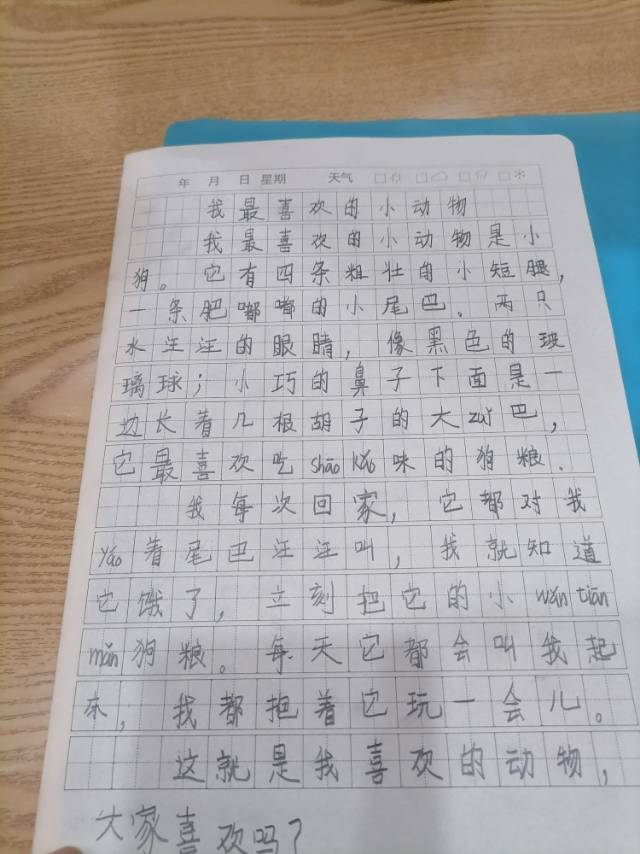 年 月 日 星期 天气
我最喜欢的小动物
我最喜欢的小动物是小
狗。它有四条粗壮的小短腿,
一条肥嘟嘟的小尾巴、两只
水汪汪的眼睛,像黑色的玻
璃球;小巧的鼻子下面是一
边长着几根胡子的大zuǐ巴,
它最喜欢吃shāo kǎo味的狗粮.
我每次回家,它都对我
yáo着尾巴汪汪叫,我就知道
它饿了,立刻把它的小wǎn tiān
mǎn狗粮。每天它都会叫我起
床,我都抱着它玩一会儿。
这就是我喜欢的动物,
大家喜欢吗?